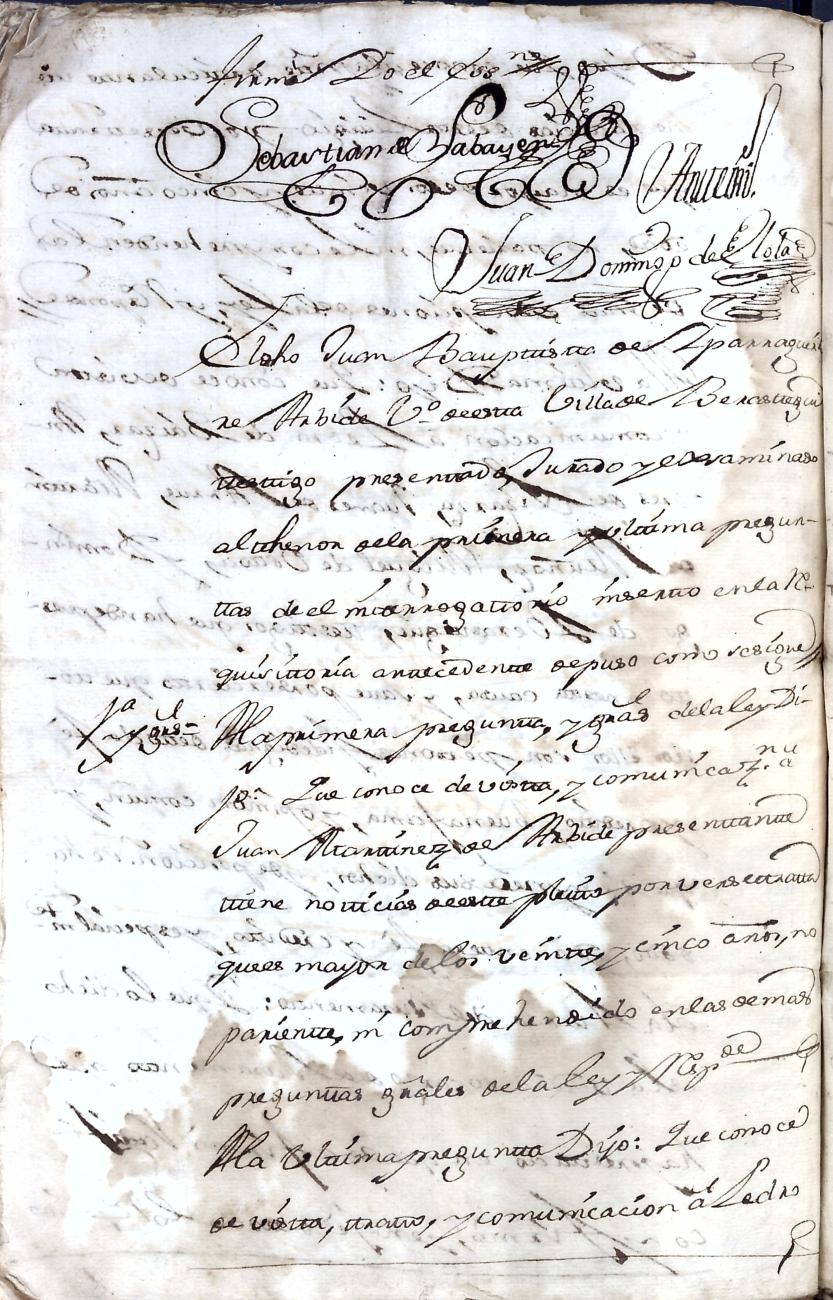 firmó Do el ess.no
Sebastian de Sabayen
Antemi
Juan Domingo de Olota
El dho Juan Bauptista de Yparraguirre
re Arbide V.º de esta Villa de Berastegui
testigo presentado, Jurado y exsaminado
al thenor de la primera y última pregun-
tas de el interrogattorio inserto en la Re-
quisittoria antecedente depuso como se sigue
1.a y grls Ala primera pregunta, y grãles de la ley Di-
jo: Que conoce de vista, y comunicaz.n a
Juan Martinez de Arbide presentante
tiene noticias de este pleito por verse trata
que es mayor de los veinte, y cinco años, no
pariente, ni comprehendido en las demas
preguntas grãles de la ley y Resp.de
Ala última pregunta Dijo: Que conoce
de vista, tratto, y comunicacion a Pedro